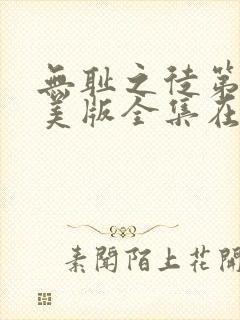 無耻之徒第
美版全集在
素聞陌上花開